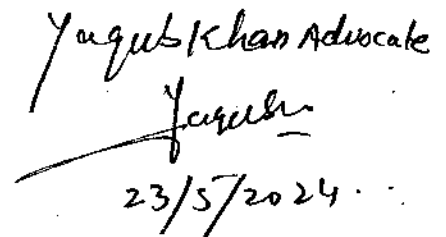 Yaqub Khan Advocate
Yaqub
23/5/2024.